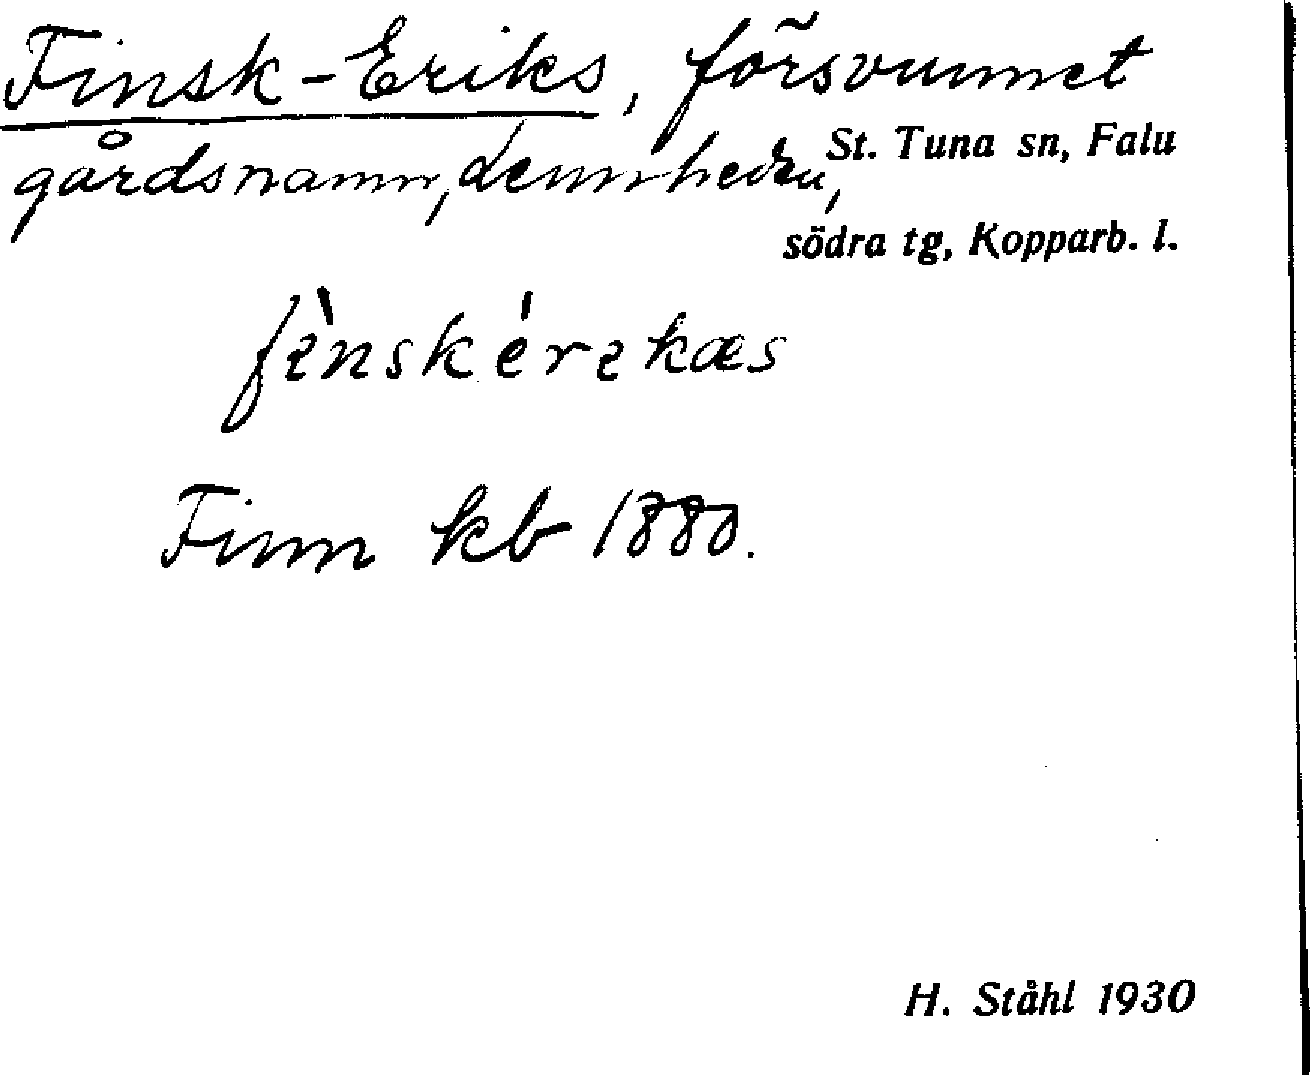 Finsk-Eriks, försvunnet
gårdsnamn, Lennheden,
St. Tuna sn, Falu
södra tg, Kopparb. l.
Finn kb 1880.
H. Ståhl 1930